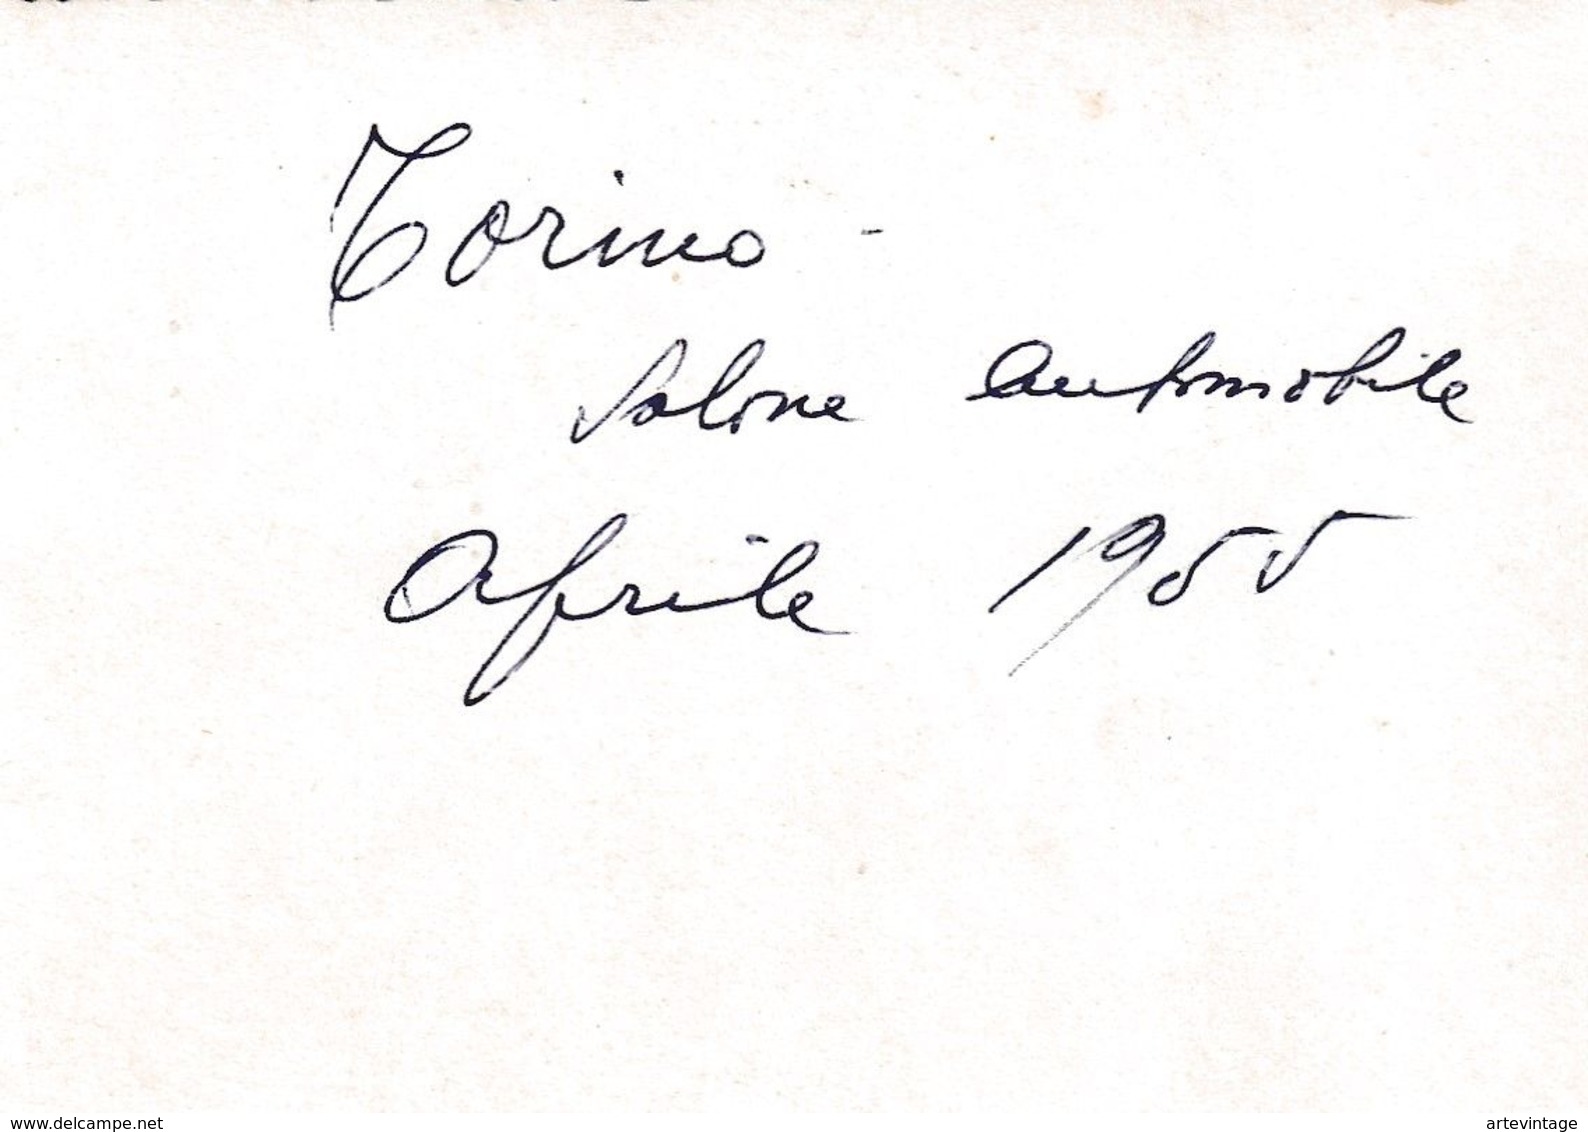 Torino -
Salone Automobile
Aprile 1955
www.delcampe.net
artevintage